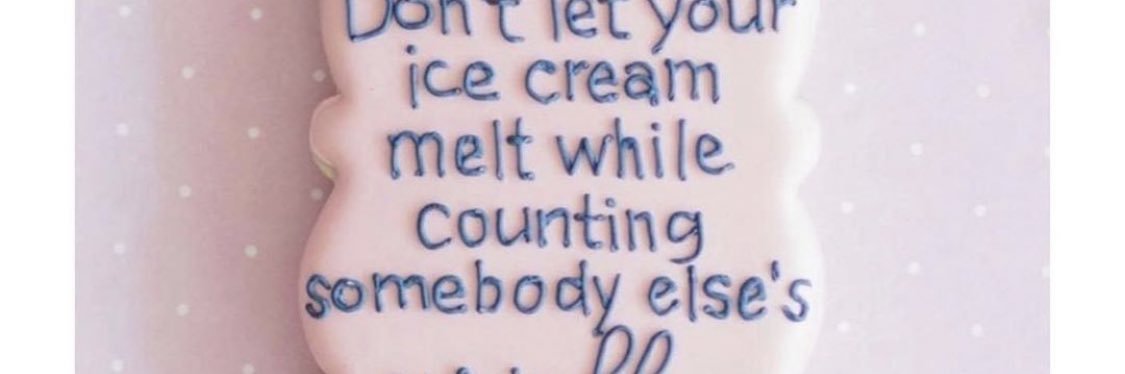 Don't let your
ice cream
melt while
counting
somebody else's